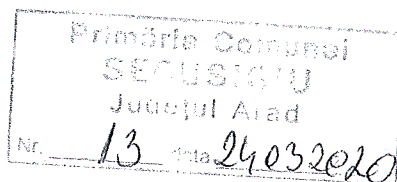 Primăria Comunei
SECUSIGIU
Județul Arad
Nr. 13 data 24 03 2020